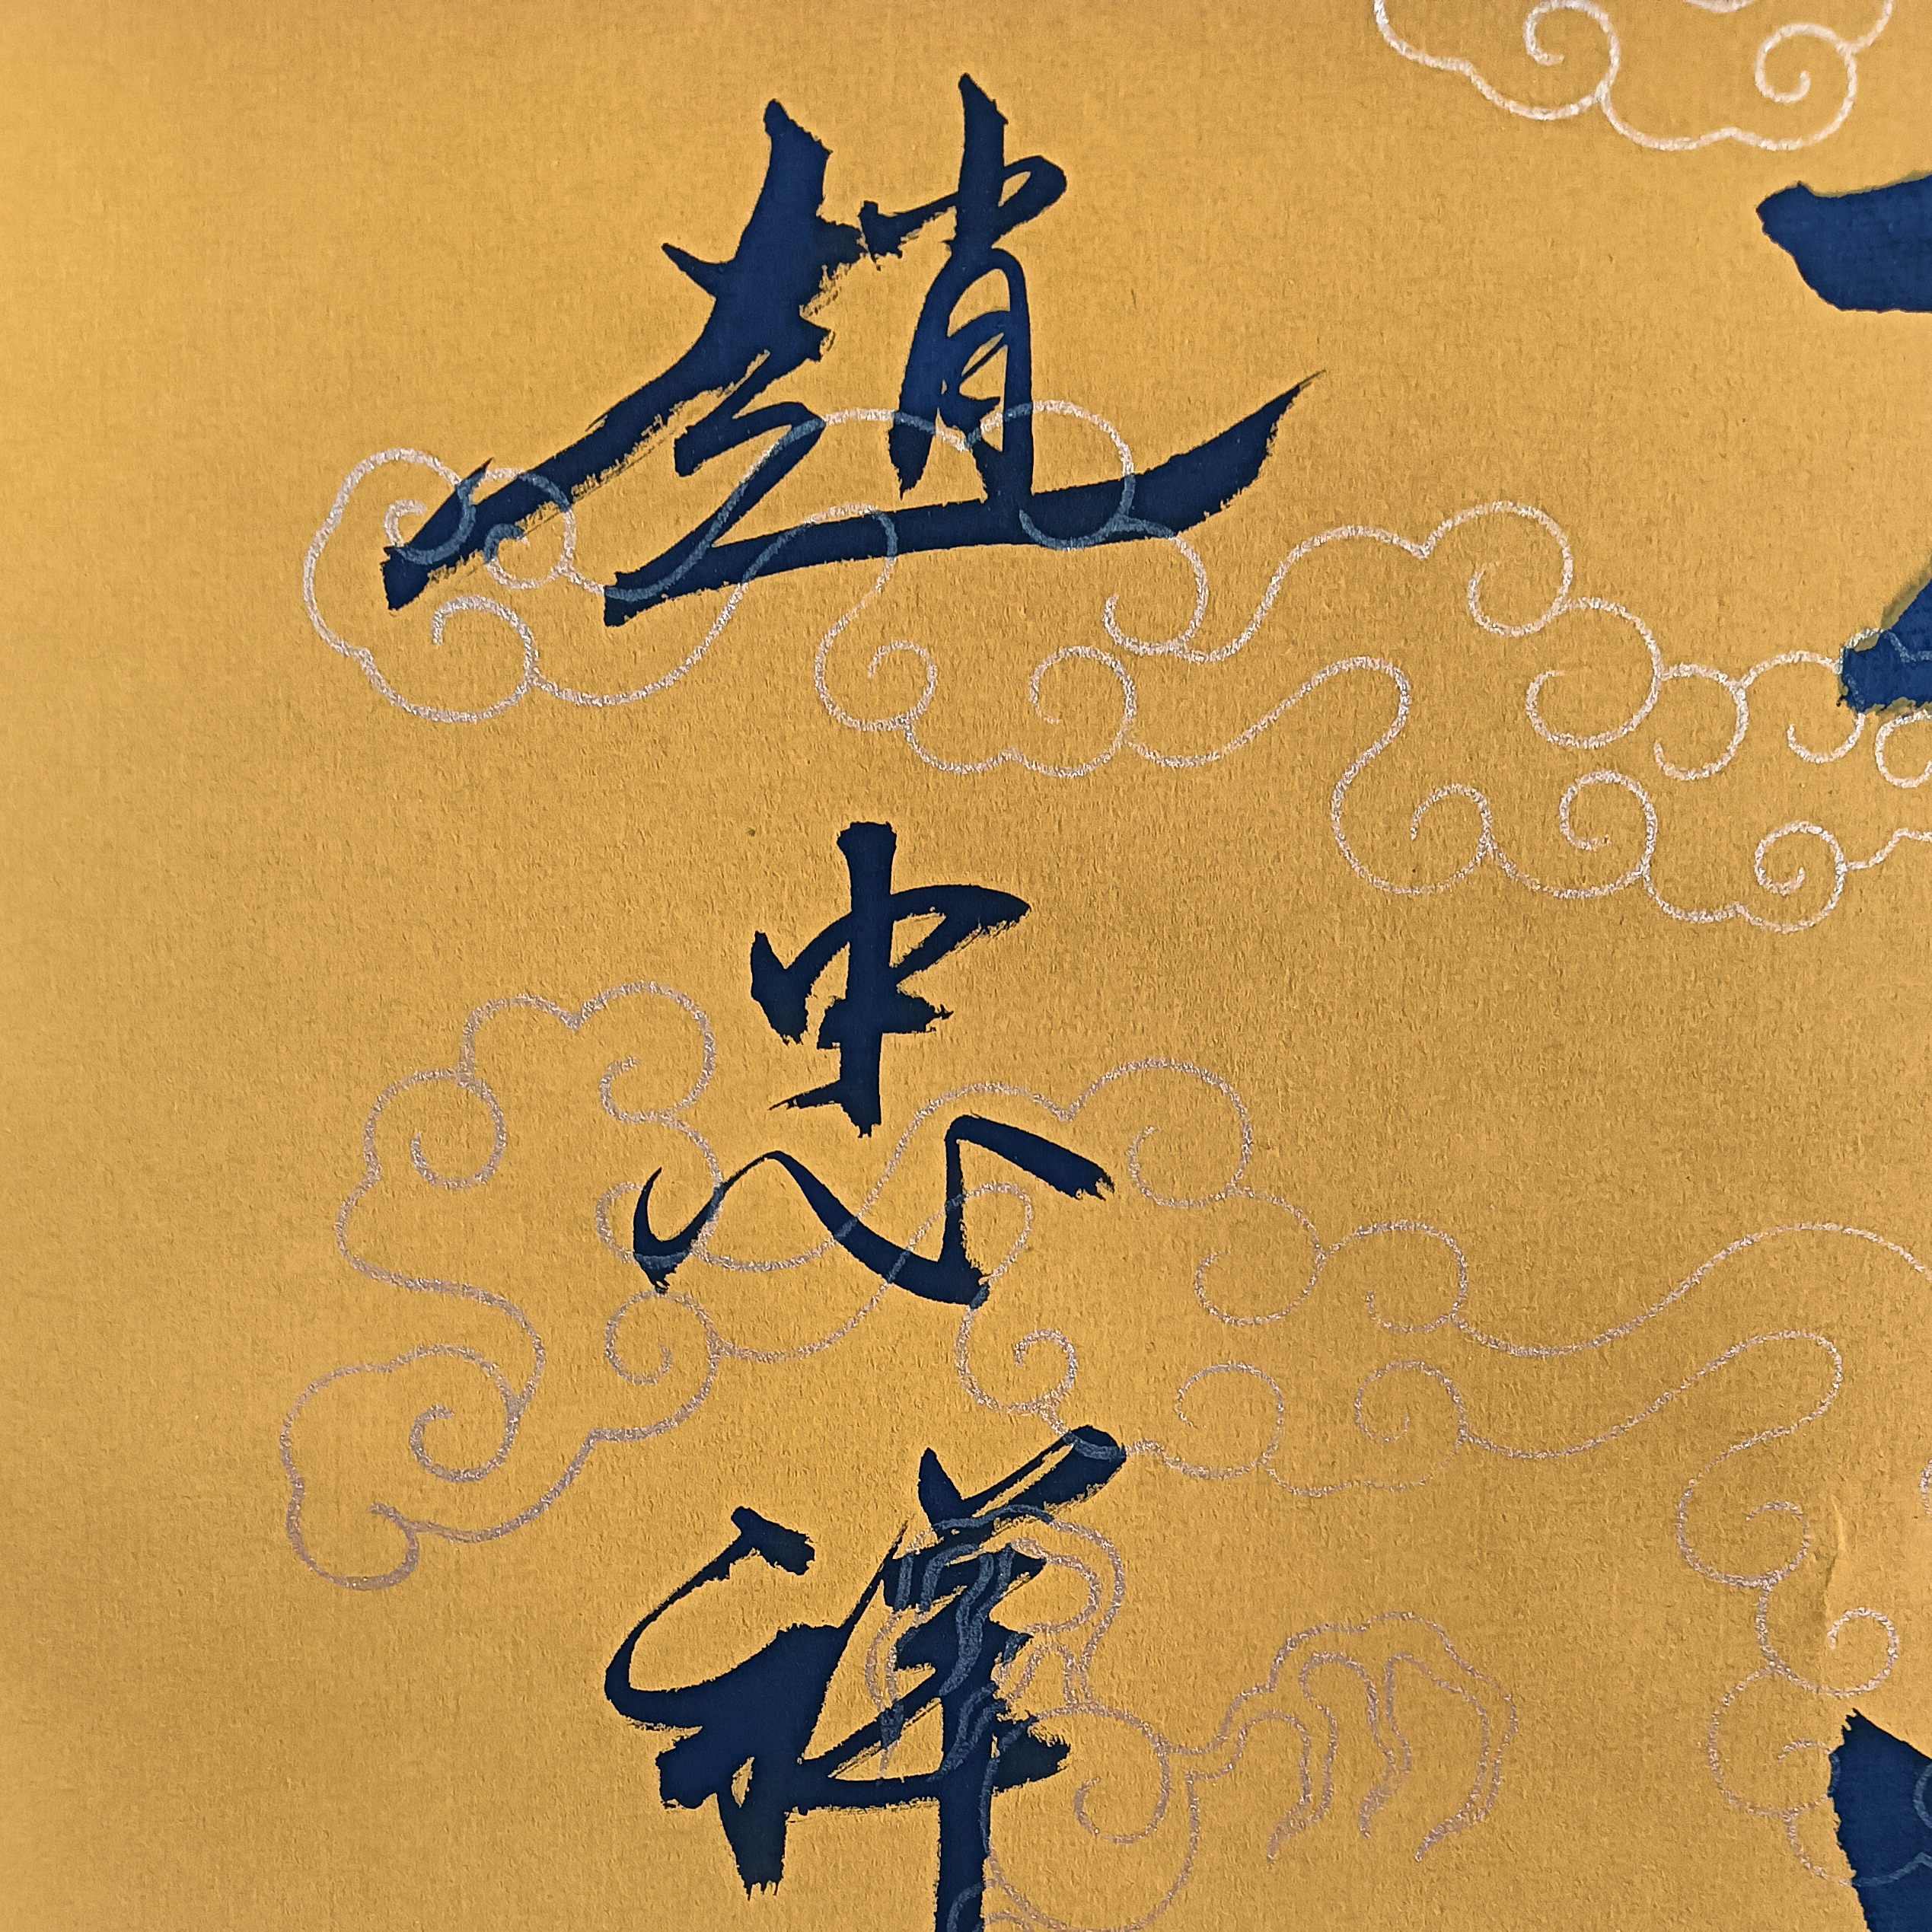 趙忠祥